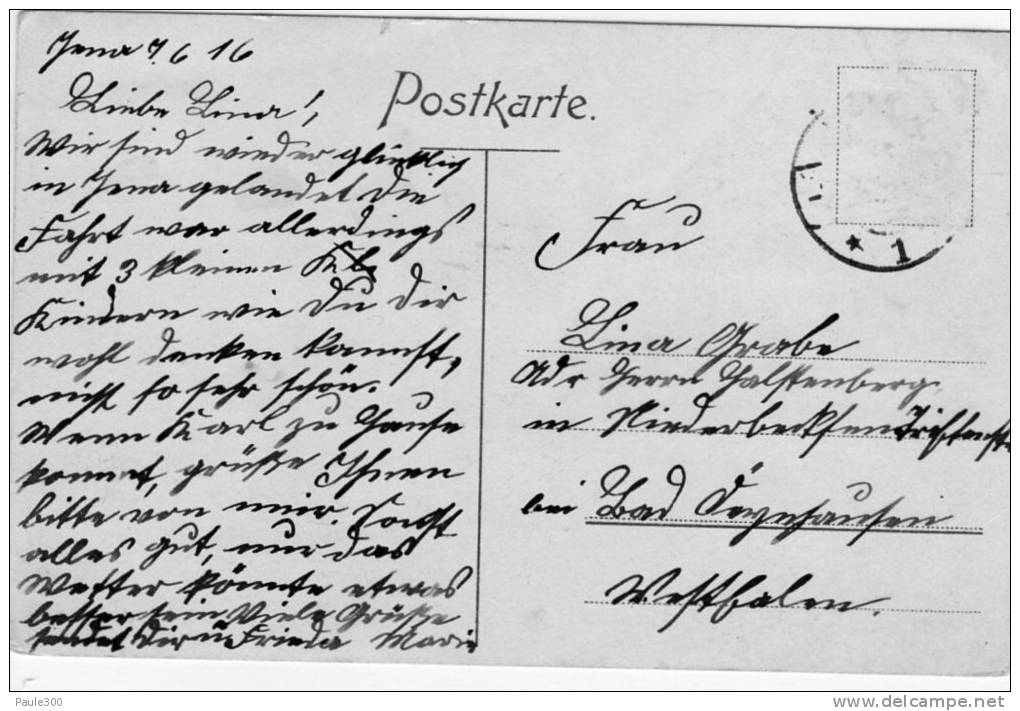 Jena 7.6 16
Postkarte.
Liebe Lina!
Wir sind wieder glücklich
in Jena gelandet die
Fahrt war allerdings
mit 3 kleinen
Kindern wie Du dir
wohl denken kannst,
nicht so sehr schön.
Wenn Karl zu Hause
kommt, grüße Ihnen
bitte von mir. Sonst
alles gut, nur das
Wetter könnte etwas
besser sein Viele Grüße
sendet Dir u Frieda Marie
Frau
Lina Grabe
Adr Herrn Halstenberg
in Niederbecksen
bei Bad Oeynhausen
Westfalen.
* 1
Paule300
delcampe.net